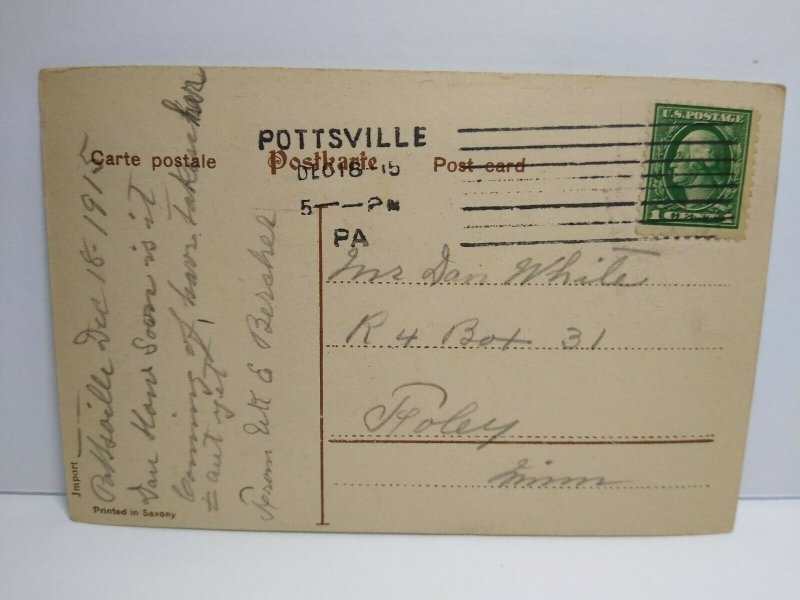 POTTSVILLE
DEC 18-15
5 — PM
PA
U.S. POSTAGE
1 CENT
Carte postale Postkarte Post card
Mr Dan White
R 4 Box 31
Foley
Minn
Pottsville Dec 18-1915
Dan How Soon is it
Coming of have taken her
out yet,
From E Bershee
Import
Printed in Saxony